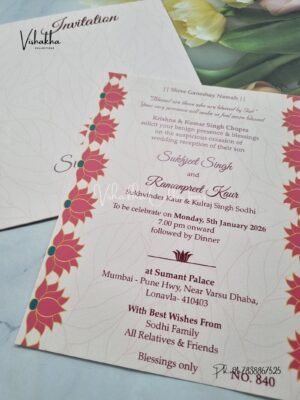 Invitation
Vishakha
COLLECTIONS
|| Shree Ganeshay Namah ||
"Blessed are those who are blessed by God"
Your very presence will make us feel more blessed
Krishna & Kumar Singh Chopra
solicit your benign presence & blessings
on the auspicious occasion of
wedding reception of their son
Sukhjeet Singh
and
Ramanpreet Kaur
Sukhvinder Kaur & Kulraj Singh Sodhi
To be celebrate on Monday, 5th January 2026
7.00 pm onward
followed by Dinner
at Sumant Palace
Mumbai - Pune Hwy, Near Varsu Dhaba,
Lonavla- 410403
With Best Wishes From
Sodhi Family
All Relatives & Friends
Blessings only
NO. 840